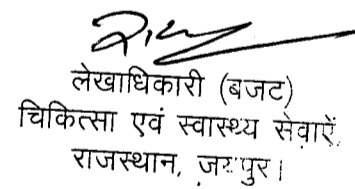 लेखाधिकारी (बजट)
चिकित्सा एवं स्वास्थ्य सेवाऐं,
राजस्थान, जयपुर।